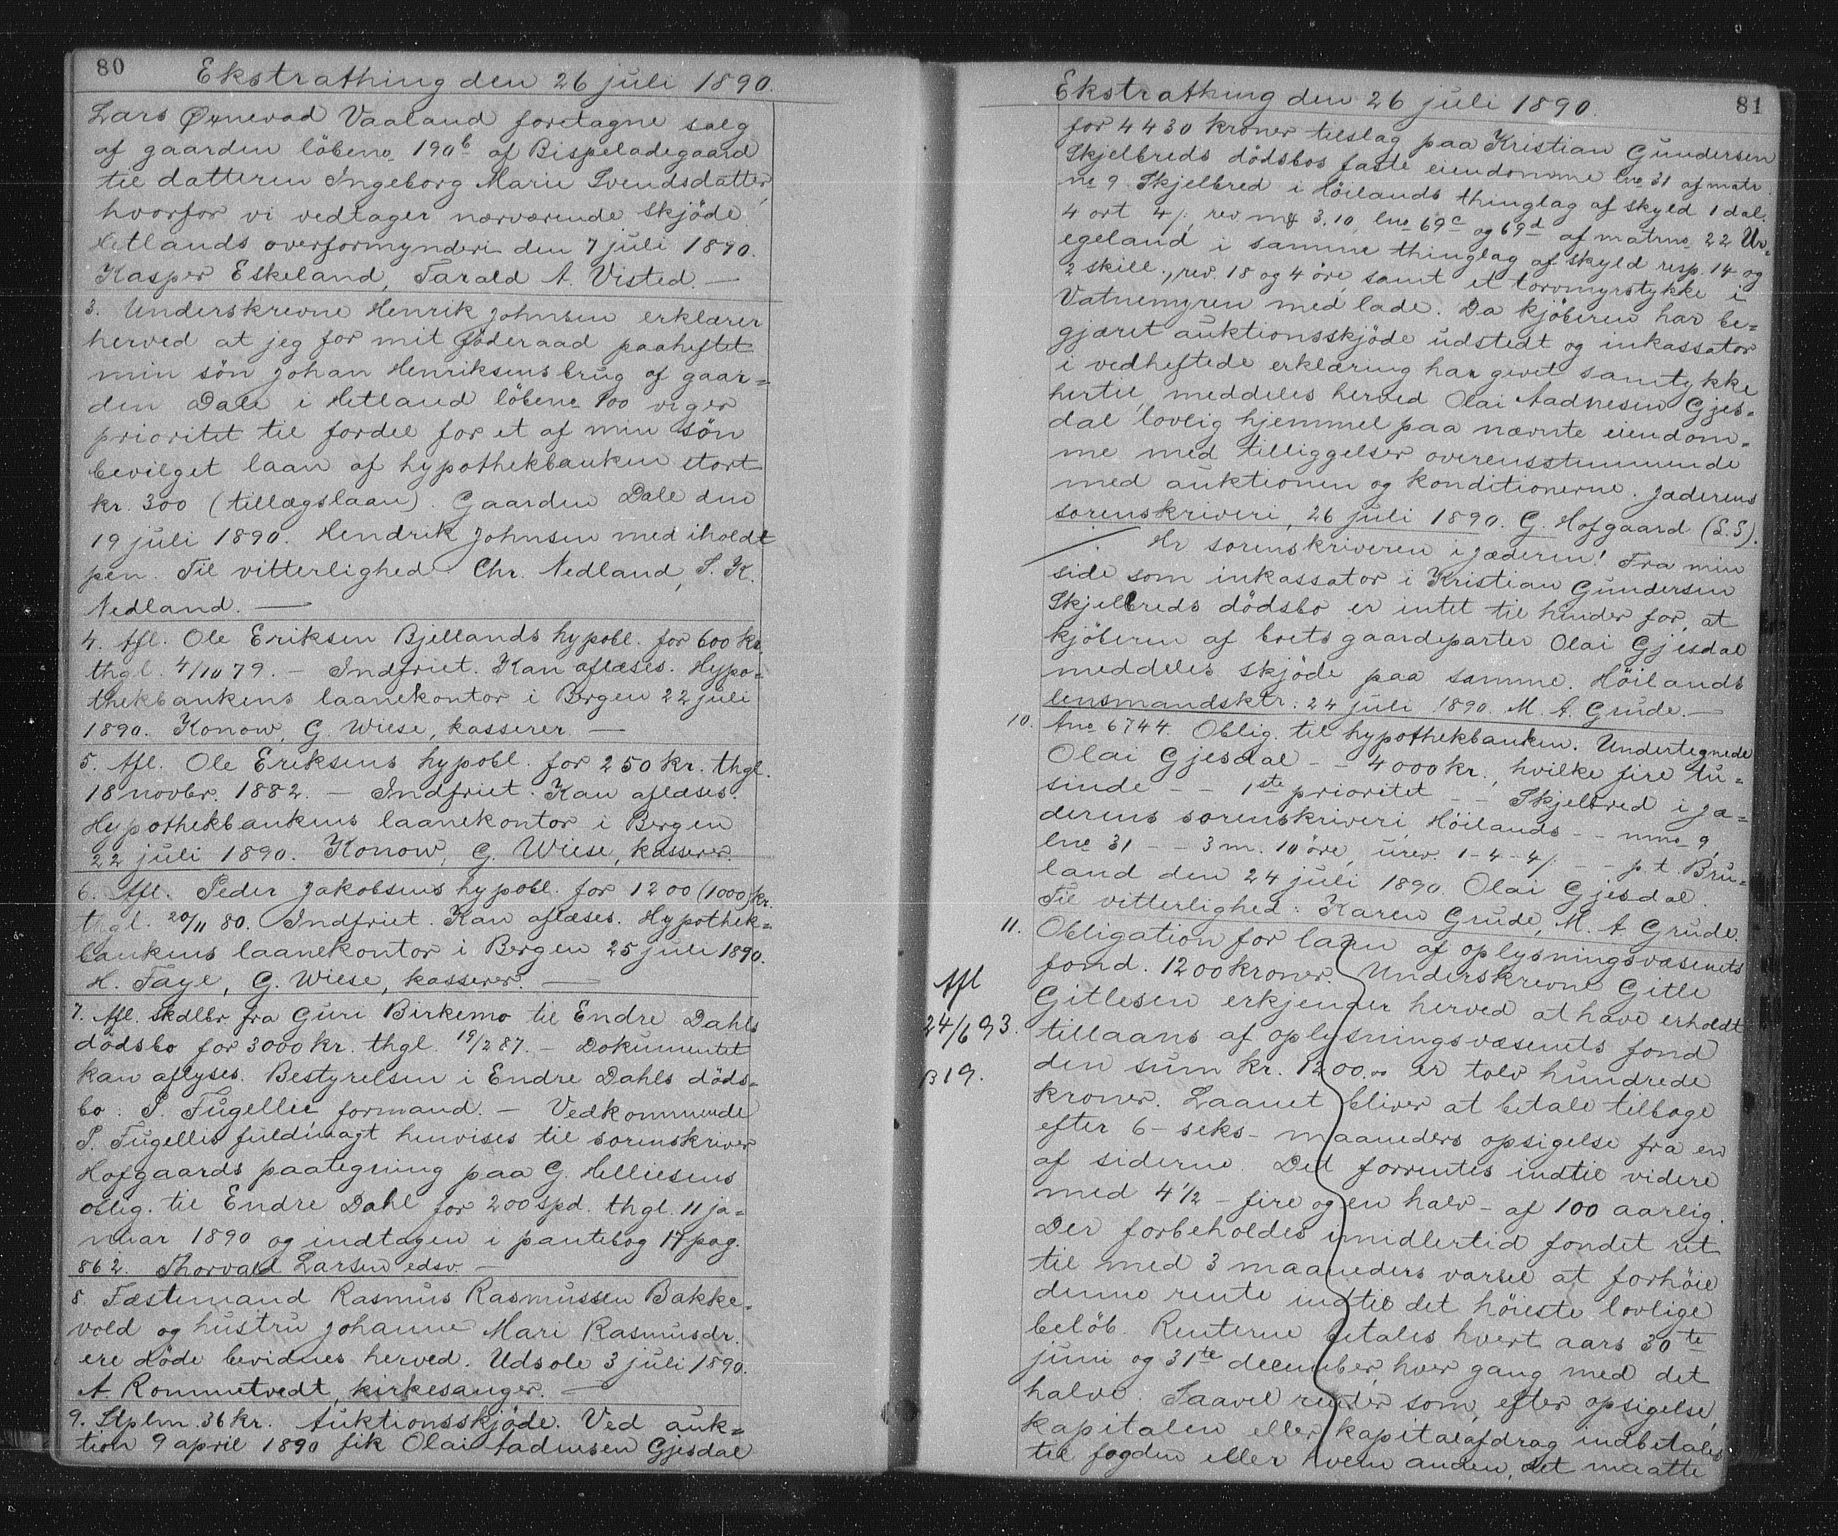 80
Ekstrathing den 26 juli 1890.
Lars Ørnevad Vaaland foretagne salg
af gaarden löbeno 190b af Bispeladegaard
til datteren Ingeborg Marie Svendsdatter,
hvorfor vi vedtager nærværende skjöde.
Hetlands overformynderi den 7 juli 1890.
Kasper Eskeland, Tarald A. Visted. —
3. Underskrevne Henrik Johnsen erklærer
herved at jeg for mit föderaad paaheftet
min sön Johan Henriksens brug af gaar-
den Dale i Hetland löbeno 100 viger
prioritet til fordel for et af min sön
bevilget laan af hypothekbanken stort
kr. 300 (tillægslaan). Gaarden Dale den
19 juli 1890. Hendrik Johnsen med iholdt
pen. Til vitterlighed Chr. Nedland, S. K.
Nedland. —
4. Afl. Ole Eriksen Bjellands hypobl. for 600 kr.
thgl. 4/10 79. — Indfriet. Kan aflæses. Hypo-
thekbankens laanekontor i Bergen 22 juli
1890. Konow, G. Wiese, kasserer —
5. Afl. Ole Eriksens hypobl. for 250 kr. thgl.
18 novbr. 1882. — Indfriet. Kan aflæses.
Hypothekbankens laanekontor i Bergen
22 juli 1890. Konow, G. Wiese, kasserer.
6. Afl. Peder Jakobsens hypobl. for 1200 (1000) kr.
thgl. 20/11 80. Indfriet. Kan aflæses. Hypothek-
bankens laanekontor i Bergen 25 juli 1890.
H. Faye, G. Wiese, kasserer. —
7. Afl. skdlbr fra Guri Birkemo til Endre Dahls
dödsbo for 3000 kr. thgl. 19/2 87. — Dokumentet
kan aflyses. Bestyrelsen i Endre Dahls döds-
bo. P. Fugellie formand. — Vedkommende
P. Fugellis fuldmagt henvises til sorenskriver
Hofgaards paategning paa G. Helliesens
oblig. til Endre Dahl for 200 spd. thgl. 11 ja-
nuar 1890 og indtagen i pantebog 17 pag.
862. Thorvald Larsen edsv. —
8. Fæstemand Rasmus Rasmussen Bakke-
vold og hustru Johanne Mari Rasmusdr.
ere döde bevidnes herved. Udsole 3 juli 1890.
A. Rommetvedt, kirkesanger. —
9. Stplm. 36 kr. Auktionsskjöde. Ved auk-
tion 9 april 1890 fik Olai Aadnesen Gjesdal
Ekstrathing den 26 juli 1890.
81
for 4430 kroner tilslag paa Kristian Gundersen
Skjelbreds dödsbos faste eiendomme lno 31 af matr.
no 9. Skjelbred i Höilands thinglag af skyld 1 dal.
4 ort 4/, rev. m 3.10, lno 69c og 69d af matrno 22 Ur-
egeland i samme thinglag af skyld resp. 14 og
2 skill., rev. 18 og 4 öre, samt et torvmyrstykke i
Vatnemyren med lade. Da kjöberen har be-
gjæret auktionsskjöde udstedt og inkassator
i vedheftede erklæring har givet samtykke
hertil, meddeles herved Olai Aadnesen Gjes-
dal lovlig hjemmel paa nævnte eiendom-
me med tilliggelser overensstemmende
med auktionen og konditionerne. Jæderens
sorenskriveri, 26 juli 1890. G. Hofgaard (L.S).
Hr sorenskriveren i Jæderen! Fra min
side som inkassator i Kristian Gundersen
Skjelbreds dödsbo er intet til hinder for, at
kjöberen af boets gaardeparter Olai Gjesdal
meddeles skjöde paa samme. Höilands
lensmandsktr. 24 juli 1890. M. A. Grude. —
10. Ano 6744. Oblig. til hypothekbanken. Undertegnede
Olai Gjesdal — — 4000 kr., hvilke fire tu-
sinde — — 1ste prioritet — — Skjelbred i Jæ-
derens sorenskriveri, Höilands — — mno 9,
lno 31 — — 3 m. 10 öre, urev. 1-4-4/. — — p. t. Bru-
land den 24 juli 1890. Olai Gjesdal.
Til vitterlighed: Karen Grude, M. A. Grude.
11. Obligation for laan af oplysningsvæsenets
fond. 1200 kroner. Underskrevne Gitle
Gitlesen erkjender herved at have erholdt
tillaans af oplysningsvæsenets fond
den sum kr. 1200.00 er tolv hundrede
kroner. Laanet bliver at betale tilbage
efter 6 - seks - maaneders opsigelse fra en
af siderne. Det forrentes indtil videre
med 4 1/2 - fire og en halv - af 100 aarlig.
Der forbeholdes imidlertid fondet ret
til med 3 maaneders varsel at forhöie
denne rente indtil det höieste lovlige
belöb. Renterne betales hvert aars 30te
juni og 31te december, hver gang med det
halve. Saavel renter som, efter opsigelse,
kapitalen eller kapitalafdrag indbetales
til fogden eller hvem anden, det maatte
Afl
24/6 93.
B 19.